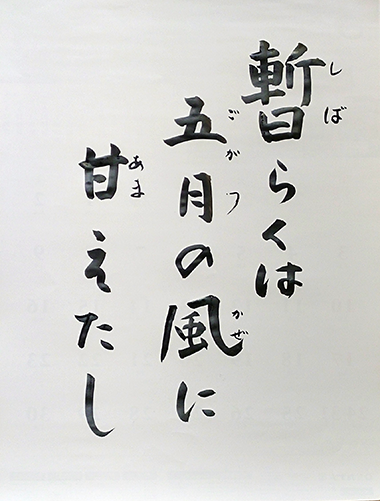 暫らくは
しば
五月の風に
ごがつ
かぜ
甘えたし
あま